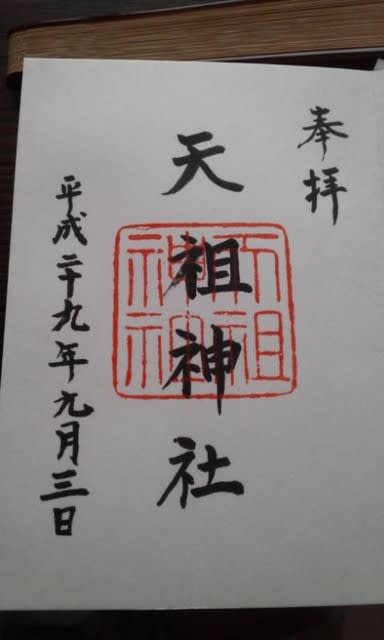 奉拝
天祖神社
天祖
神社
平成二十九年九月三日